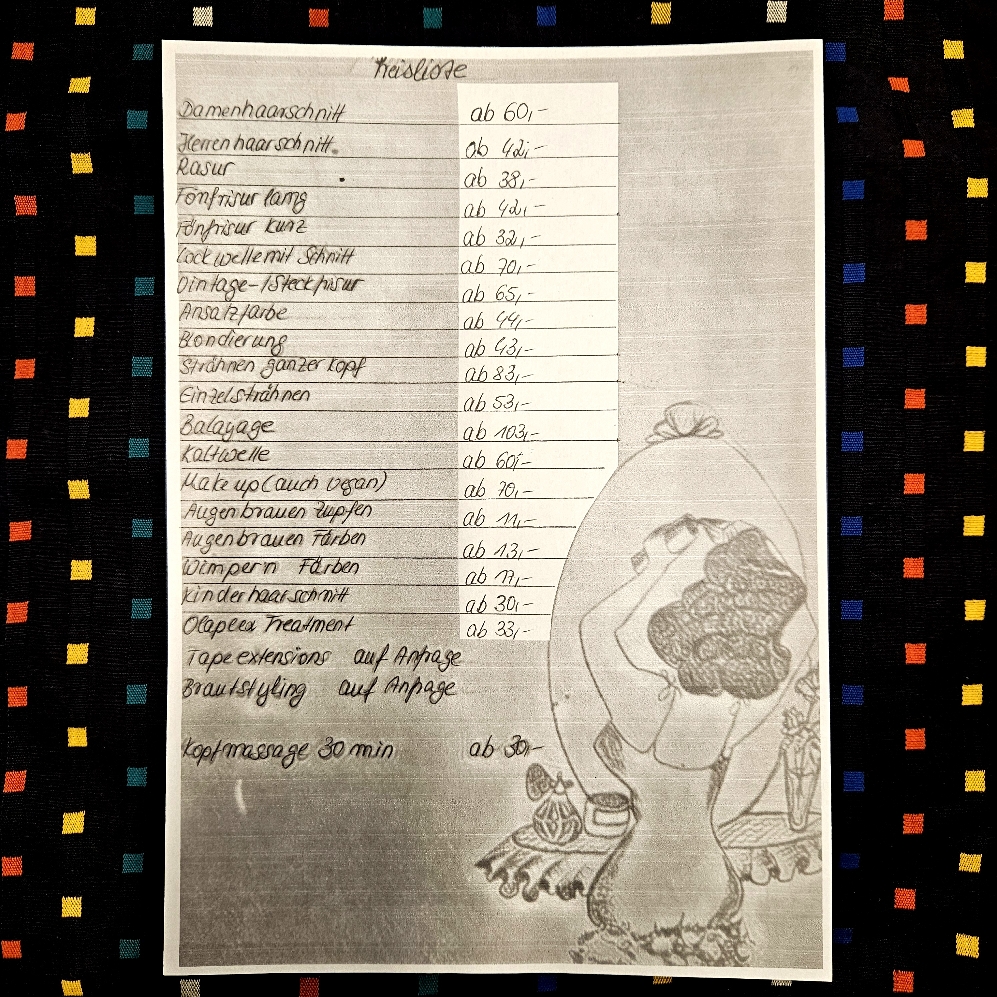 Preisliste
Damenhaarschnitt ab 60,-
Herrenhaarschnitt. ab 42,-
Rasur ab 38,-
Fönfrisur lang ab 42,-
Fönfrisur kurz ab 32,-
Lockwelle mit Schnitt ab 70,-
Vintage-/Steckfrisur ab 65,-
Ansatzfarbe ab 44,-
Blondierung ab 43,-
Strähnen ganzer Kopf ab 83,-
Einzelsträhnen ab 53,-
Balayage ab 103,-
Kaltwelle ab 60,-
Make up (auch vegan) ab 70,-
Augenbrauen zupfen ab 11,-
Augenbrauen Färben ab 13,-
Wimpern Färben ab 17,-
Kinderhaarschnitt ab 30,-
Olapeex Treatment ab 33,-
Tapeextensions auf Anfrage
Brautstyling auf Anfrage
Kopfmassage 30 min ab 30,-